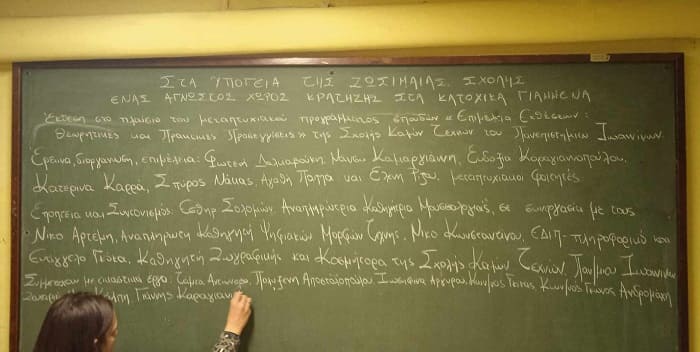 ΣΤΑ ΥΠΟΓΕΙΑ ΤΗΣ ΖΩΣΙΜΑΙΑΣ ΣΧΟΛΗΣ
ΕΝΑΣ ΑΓΝΩΣΤΟΣ ΧΩΡΟΣ ΚΡΑΤΗΣΗΣ ΣΤΑ ΚΑΤΟΧΙΚΑ ΓΙΑΝΝΕΝΑ
Έκθεση στο πλαίσιο του μεταπτυχιακού προγράμματος σπουδών «Επιμέλεια Εκθέσεων:
Θεωρητικές και Πρακτικές Προσεγγίσεις» της Σχολής Καλών Τεχνών του Πανεπιστημίου Ιωαννίνων.
Έρευνα, διοργάνωση, επιμέλεια: Φωτεινή Νάνσυ Καμαργιάννη, Ευδοξία Καραγιαννοπούλου,
Κατερίνα Καρρά, Σπύρος Νάκας, Αγαθή Παππά και Ελένη Ρίζου, μεταπτυχιακοί φοιτητές.
Εποπτεία και Συντονισμός: Εσθήρ Σολομών, Αναπληρώτρια Καθηγήτρια Μουσειολογίας, σε συνεργασία με τους
Νίκο Αρτέμη, Αναπληρωτή Καθηγητή Ψηφιακών Μορφών Τέχνης, Νίκο Κωνσταντίνου, ΕΔΙΠ-πληροφορικό και
Ευάγγελο Γκόκα, Καθηγητή Ζωγραφικής και Κοσμήτορα της Σχολής Καλών Τεχνών, Παν/μιο Ιωαννίνων
Συμμετέχουν με εικαστικά έργα: Πολυξένη Αποστολοπούλου, Ιωσηφίνα Αργυρού, Κων/νος Κων/νος Ανδρομάχη
Γιάννης